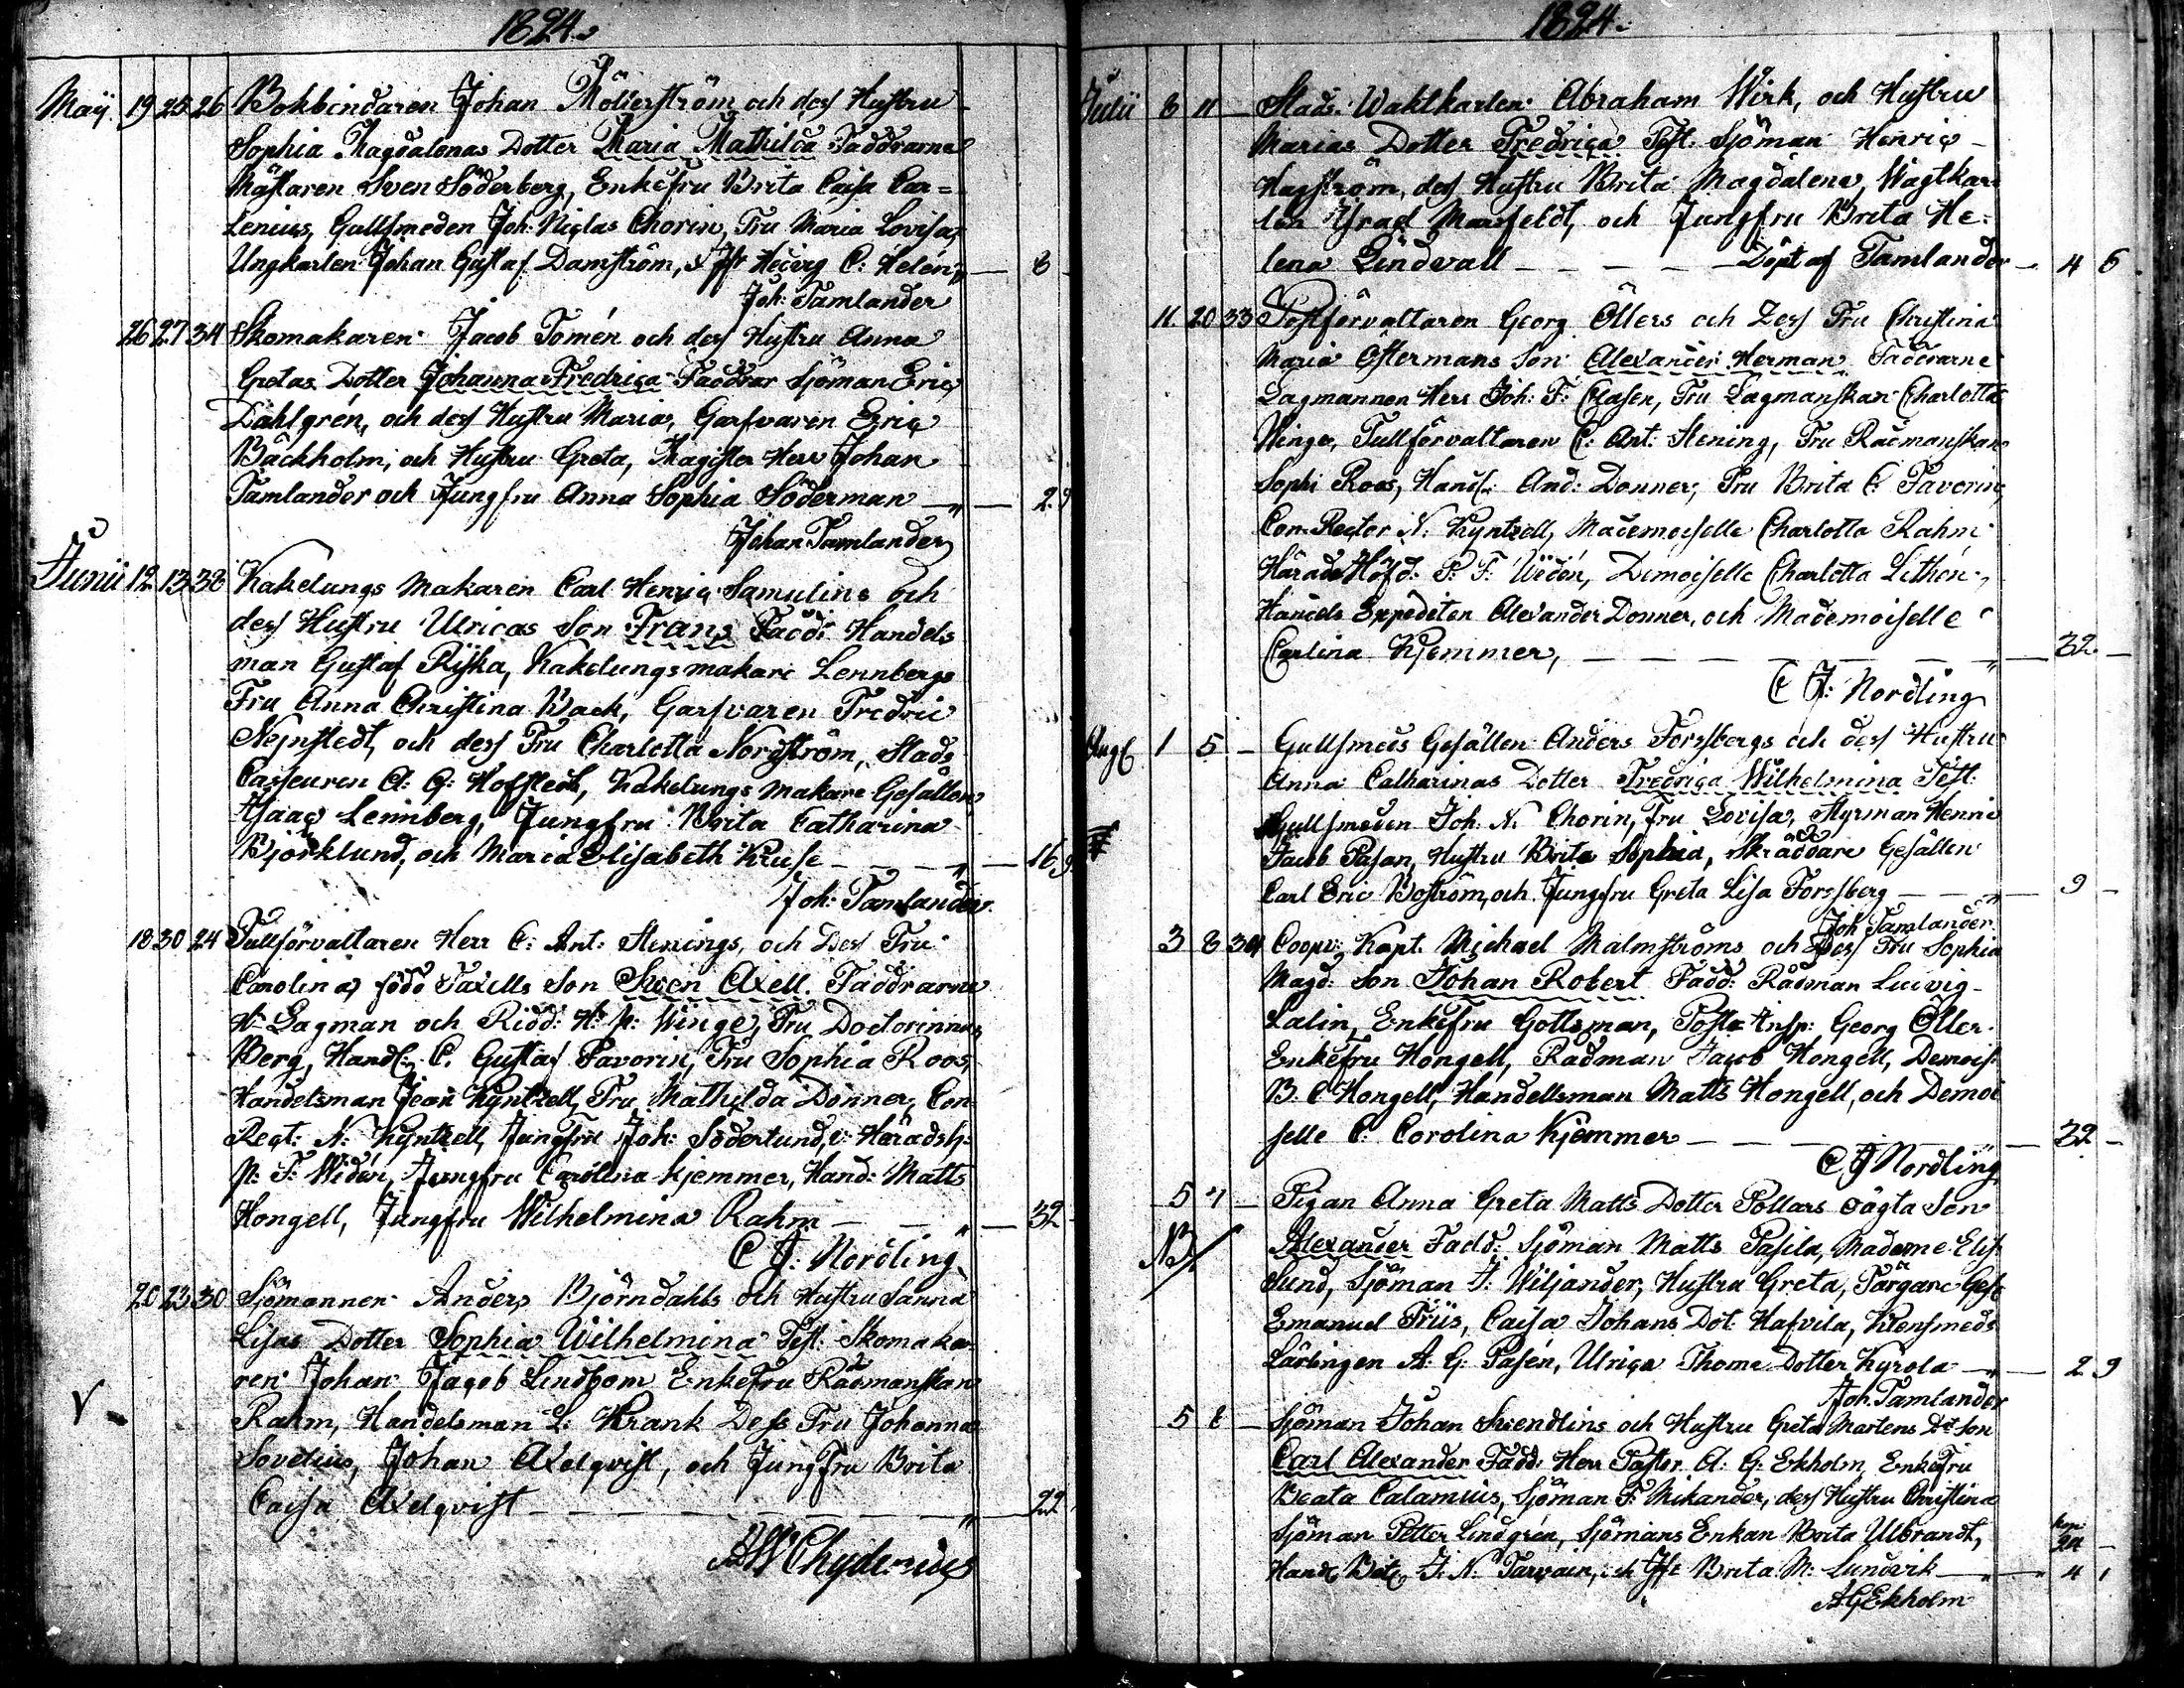 1824.
Maÿ. 19 25 26 Bokbindaren Johan Möllerström och dess Hustru
Sophia Magdalenas Dotter Maria Mathilda Faddrarne
Mästaren Sven Söderberg, Enkefru Brita Caisa Car=
Lenius, Gullsmeden Joh: Niclas Chorin, Fru Maria Lovisa,
Ungkarlen Johan Gustaf Damström, Jfr Hedvig C: Helén — 8
Joh: Tamlander
26 27 34 Skomakaren Jacob Tomén och dess Hustru Anna
Gretas Dotter Johanna Fredrica Faddrar Sjöman Eric
Dahlgrén, och dess Hustru Maria, Garfvaren Eric
Bäckholm, och Hustru Greta, Magister Herr Johan
Tamlander och Jungfru Anna Sophia Söderman — " — 2. 9
Johan Tamlander
Junii 12 13 38 Kakelungs Makaren Carl Henric Samulins och
dess Hustru Ulricas Son Frans Fadd: Handels
man Gustaf Riska, Kakelungsmakare Lennbergs
Fru Anna Christina Back, Garfvaren Fredric
Nejnstedt, och dess Fru Charlotta Nordström, Stads
Casseuren A: G: Hoffleck, Kakelungs Makare Gesällen
Isaac Lennberg, Jungfru Brita Catharina
Björklund, och Maria Elisabeth Kruse — — " — 16 9
Joh: Tamlander.
18 30 24 Tullförvaltaren Herr C: Ant: Stenings, och Dess Fru
Carolina, född Taxells Son Sven Axell. Faddrarne
Hr Lagman och Ridd: H: P: Winge, Fru Doctorinnan
Berg, Handl: C. Gustaf Favorin, Fru Sophia Roos,
Handelsman Jean Kyntzell, Fru Mathilda Donner, Con
Rect: N: Kyntzell, Jungfru Joh: Söderlund, v: Häradsh:
P: F: Widén, Jungfru Carolina Kjemmer, Hand: Matts
Hongell, Jungfru Wilhelmina Rahm — — " — 32
C J: Nordling
20 23 30 Sjömannen Anders Björndahls och Hustru Sanna
Lisas Dotter Sophia Wilhelmina Test: Skomaka
ren Johan Jacob Lindbom Enkefru Rådmanskan
V Rahm, Handelsman L: Krank Dess Fru Johanna
Sovelius, Johan Axelqvist, och Jungfru Brita
Caisa Axelqvist — — — — " — 22
AW Chydenius
1824.
Julii 8 11 — Stads Waktkarlen Abraham Wirk, och Hustru
Marias Dotter Fredrica Test. Sjöman Henric
Hagström, dess Hustru Brita Magdalena, Wagtkar
len Israel Marsfeldt, och Jungfru Brita He-
lena Lindvall — — — — Döpt af Tamlander — 4 6
11 20 33 Postförvaltaren Georg Öllers och Dess Fru Christina
Maria Östermans Son Alexander Herman Faddrarne
Lagmannen Herr Joh: F: Clasen, Fru Lagmanskan Charlotta
Winge, Tullförvaltaren C: Ant: Stening, Fru Rådmanskan
Sophi Roos, Handl: And: Donner, Fru Brita C: Favorin,
Con-Rector N: Kyntzell, Mademoiselle Charlotta Rahm
Härads Höfd: P: F: Widén, Demoiselle Charlotta Lithén,
Handels Expediten Alexander Donner, och Mademoiselle
Carlina Kjemmer, — — — — " — 32 —
C J: Nordling
Aug 1 5 — Gullsmeds Gesällen Anders Forssbergs och dess Hustru
Anna Catharinas Dotter Fredrica Wilhelmina Test:
Gullsmeden Joh: N: Chorin, Fru Lovisa, Styrman Henric
Jacob Pasan, Hustru Brita Sophia, Skräddare Gesällen
Carl Eric Boström, och Jungfru Greta Lisa Forssberg — " — 9 —
Joh Tamlander.
3 8 34 Coopv: Kapt. Michael Malmströms och Dess Fru Sophia
Magd: Son Johan Robert Fadd: Rådman Ludvig
Lalin, Enkefru Gottsman, Post Insp: Georg Öller
Enkefru Hongell, Rådman Jacob Hongell, Demois:
B. C Hongell, Handellsman Matts Hongell, och Demoi
selle C: Carolina Kjemmer — — — — 32 —
C J Nordling
5 7 — Pigan Anna Greta Matts Dotter Pollars oägta Son
NB/ Alexander Fadd: Sjöman Matts Pasila, Madame Elis
Sund, Sjöman J: Wiljander, Hustru Greta, Färgare Ges
Emanuel Friis, Caisa Johans Dot: Hafvila, Klensmeds
Lärlingen A: G: Pasén, Ulrica Thomæ Dotter Kyrola — " — 2 9
Joh. Tamlander
5 8 — Sjöman Johan Svendlins och Hustru Greta Martens Dr Son
Carl Alexander Fadd: Herr Pastor A: G: Ekholm, Enkefru
Beata Calamnius, Sjöman F: Mikander, dess Hustru Christina
Sjöman Petter Lindgrén, Sjömans Enkan Brita Ulbrandt,
Handl J: N: och Jfr Brita M: Sundvik — " — 4 1
AGEkholm